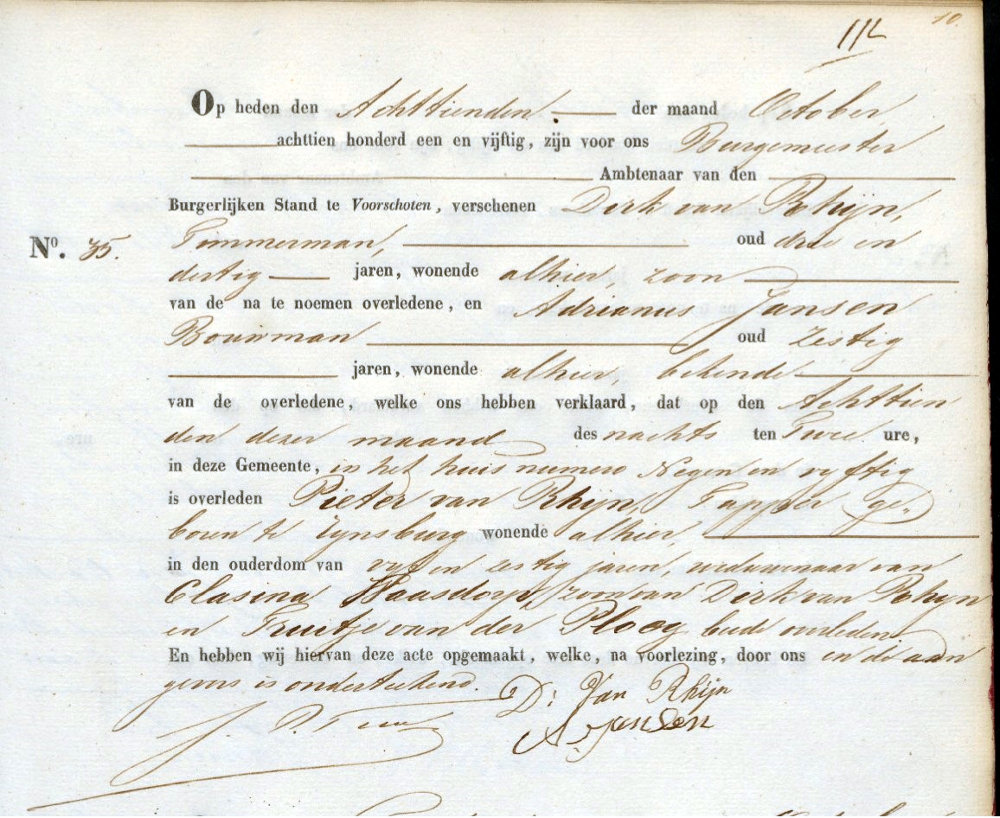 10.
Op heden den Achttienden der maand October
achttien honderd een en vijftig, zijn voor ons Burgemeester
Ambtenaar van den
Burgerlijken Stand te Voorschoten, verschenen Dirk van Rhijn,
N⁰. 35. Timmerman, oud drie en
dertig jaren, wonende alhier, zoon
van de na te noemen overledene, en Adrianus Jansen
Bouwman oud Zestig
jaren, wonende alhier, bekende
van de overledene, welke ons hebben verklaard, dat op den Achttien
den dezer maand des nachts ten Twee ure,
in deze Gemeente, in het huis numero Negen en vyftig
is overleden Pieter van Rhijn, Tapper ge-
boren te Rynsburg wonende alhier,
in den ouderdom van vyf en zestig jaren, weduwnaar van
Clasina Haasdorp, zoon van Dirk van Rhijn
en Truitje van der Ploog beide overleden
En hebben wij hiervan deze acte opgemaakt, welke, na voorlezing, door ons en de aan
gevers is onderteekend.
D: Van Rhijn
A. Jansen